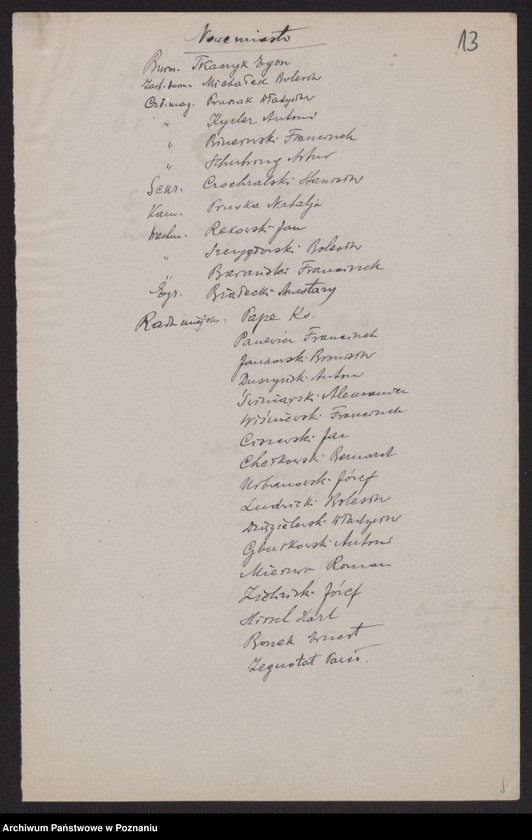 Nowemiasto
13
Burm. Tkaczyk Egon
Zast. burm. Michałek Bolesław
Czł. mag. Prusak Władysław
" Kycler Antoni
" Franciszek
" Artur
Sekr. Czochralski Stanisław
Kanc. Pruska Natalja
Wachm. Rekowski Jan
" Bolesław
" Barański Franciszek
Egz. Białecki Anastazy
Rada miejska: Pape Ks.
Franciszek
Jankowski Bronisław
Duszyński Antoni
Świniarski Aleksander
Wiśniewski Franciszek
Ciszewski Jan
Chełkowski Bernard
Urbanowski Józef
Ludwicki Bolesław
Dzięgielewski Władysław
Gburkowski Antoni
Roman
Zieliński Józef
Hirsch Karl
Bonek Ernest
Zegnotat
Archiwum Państwowe w Poznaniu